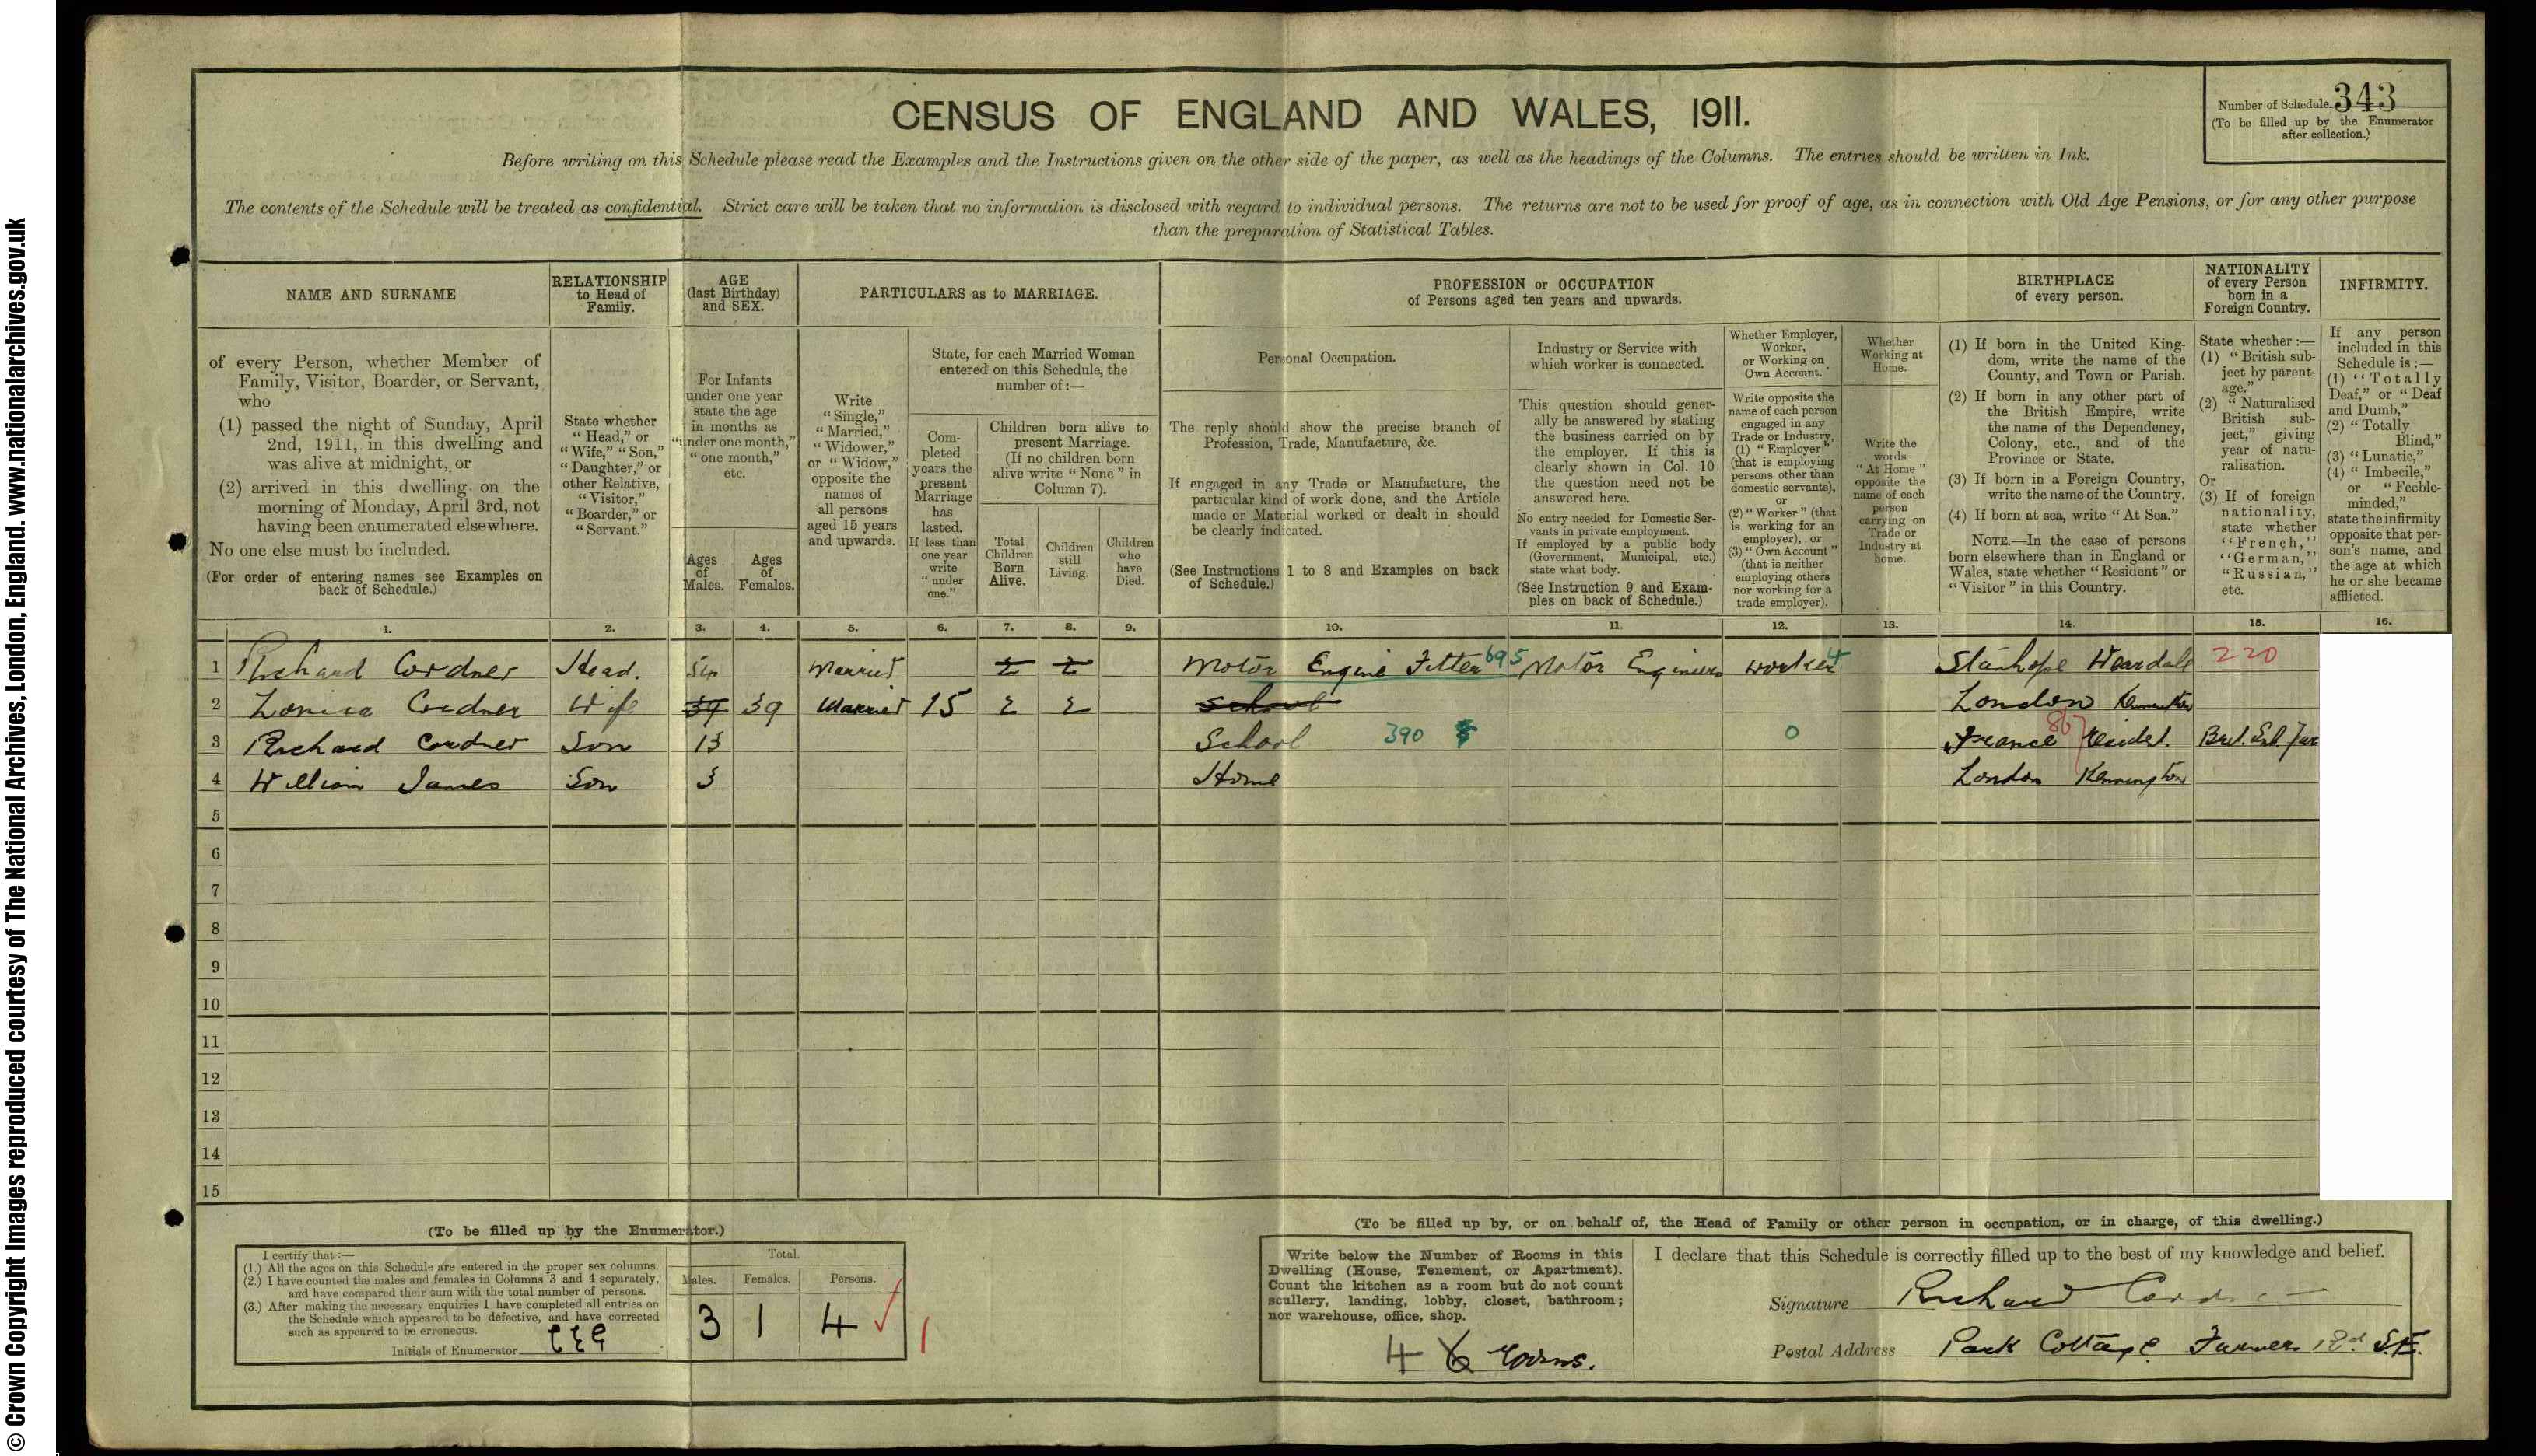 © Crown Copyright Images reproduced courtesy of The National Archives, London, England. www.nationalarchives.gov.uk
CENSUS OF ENGLAND AND WALES, 1911.
Number of Schedule 343
(To be filled up by the Enumerator
after collection.)
Before writing on this Schedule please read the Examples and the Instructions given on the other side of the paper, as well as the headings of the Columns. The entries should be written in Ink.
The contents of the Schedule will be treated as confidential. Strict care will be taken that no information is disclosed with regard to individual persons. The returns are not to be used for proof of age, as in connection with Old Age Pensions, or for any other purpose
than the preparation of Statistical Tables.
NAME AND SURNAME
RELATIONSHIP
to Head of
Family.
AGE
(last Birthday)
and SEX.
PARTICULARS as to MARRIAGE.
PROFESSION or OCCUPATION
of Persons aged ten years and upwards.
BIRTHPLACE
of every person.
NATIONALITY
of every Person
born in a
Foreign Country.
INFIRMITY.
of every Person, whether Member of
Family, Visitor, Boarder, or Servant,
who
(1) passed the night of Sunday, April
2nd, 1911, in this dwelling and
was alive at midnight, or
(2) arrived in this dwelling on the
morning of Monday, April 3rd, not
having been enumerated elsewhere.
No one else must be included.
(For order of entering names see Examples on
back of Schedule.)
State whether
"Head," or
"Wife," "Son,"
"Daughter," or
other Relative,
"Visitor,"
"Boarder," or
"Servant."
For Infants
under one year
state the age
in months as
"under one month,"
"one month,"
etc.
Ages
of
Males.
Ages
of
Females.
Write
"Single,"
"Married,"
"Widower,"
or "Widow,"
opposite the
names of
all persons
aged 15 years
and upwards.
State, for each Married Woman
entered on this Schedule, the
number of :—
Com-
pleted
years the
present
Marriage
has
lasted.
If less than
one year
write
"under
one."
Children born alive to
present Marriage.
(If no children born
alive write "None" in
Column 7).
Total
Children
Born
Alive.
Children
still
Living.
Children
who
have
Died.
Personal Occupation.
The reply should show the precise branch of
Profession, Trade, Manufacture, &c.
If engaged in any Trade or Manufacture, the
particular kind of work done, and the Article
made or Material worked or dealt in should
be clearly indicated.
(See Instructions 1 to 8 and Examples on back
of Schedule.)
Industry or Service with
which worker is connected.
This question should gener-
ally be answered by stating
the business carried on by
the employer. If this is
clearly shown in Col. 10
the question need not be
answered here.
No entry needed for Domestic Ser-
vants in private employment.
If employed by a public body
(Government, Municipal, etc.)
state what body.
(See Instruction 9 and Exam-
ples on back of Schedule.)
Whether Employer,
Worker,
or Working on
Own Account.
Write opposite the
name of each person
engaged in any
Trade or Industry,
(1) "Employer"
(that is employing
persons other than
domestic servants),
or
(2) "Worker" (that
is working for an
employer), or
(3) "Own Account"
(that is neither
employing others
nor working for a
trade employer).
Whether
Working at
Home.
Write the
words
"At Home"
opposite the
name of each
person
carrying on
Trade or
Industry at
home.
(1) If born in the United King-
dom, write the name of the
County, and Town or Parish.
(2) If born in any other part of
the British Empire, write
the name of the Dependency,
Colony, etc., and of the
Province or State.
(3) If born in a Foreign Country,
write the name of the Country.
(4) If born at sea, write "At Sea."
NOTE.—In the case of persons
born elsewhere than in England or
Wales, state whether "Resident" or
"Visitor" in this Country.
State whether :—
(1) "British sub-
ject by parent-
age."
(2) "Naturalised
British sub-
ject," giving
year of natu-
ralisation.
Or
(3) If of foreign
nationality,
state whether
"French,"
"German,"
"Russian,"
etc.
If any person
included in this
Schedule is :—
(1) "Totally
Deaf," or "Deaf
and Dumb,"
(2) "Totally
Blind,"
(3) "Lunatic,"
(4) "Imbecile,"
or "Feeble-
minded,"
state the infirmity
opposite that per-
son's name, and
the age at which
he or she became
afflicted.
1. 2. 3. 4. 5. 6. 7. 8. 9. 10. 11. 12. 13. 14. 15. 16.
1 Richard Cordner Head. Married 2 2 Motor Engine Fitter 695 Motor Engineers worker 4 Stanhope Weardale 220
2 Cordner Wife 39 39 Married 15 2 2 School London Kennington
3 Richard Cordner Son 13 School 390 0 France 867 Resident.
4 William James Son 3 Home London Kennington
5
6
7
8
9
10
11
12
13
14
15
(To be filled up by the Enumerator.)
I certify that :—
(1.) All the ages on this Schedule are entered in the proper sex columns.
(2.) I have counted the males and females in Columns 3 and 4 separately,
and have compared their sum with the total number of persons.
(3.) After making the necessary enquiries I have completed all entries on
the Schedule which appeared to be defective, and have corrected
such as appeared to be erroneous.
Initials of Enumerator
Total.
Males. Females. Persons.
3 1 4
(To be filled up by, or on behalf of, the Head of Family or other person in occupation, or in charge, of this dwelling.)
Write below the Number of Rooms in this
Dwelling (House, Tenement, or Apartment).
Count the kitchen as a room but do not count
scullery, landing, lobby, closet, bathroom;
nor warehouse, office, shop.
4 6 rooms.
I declare that this Schedule is correctly filled up to the best of my knowledge and belief.
Signature Richard Cordner
Postal Address Park Cottage Farmers Rd S.E.